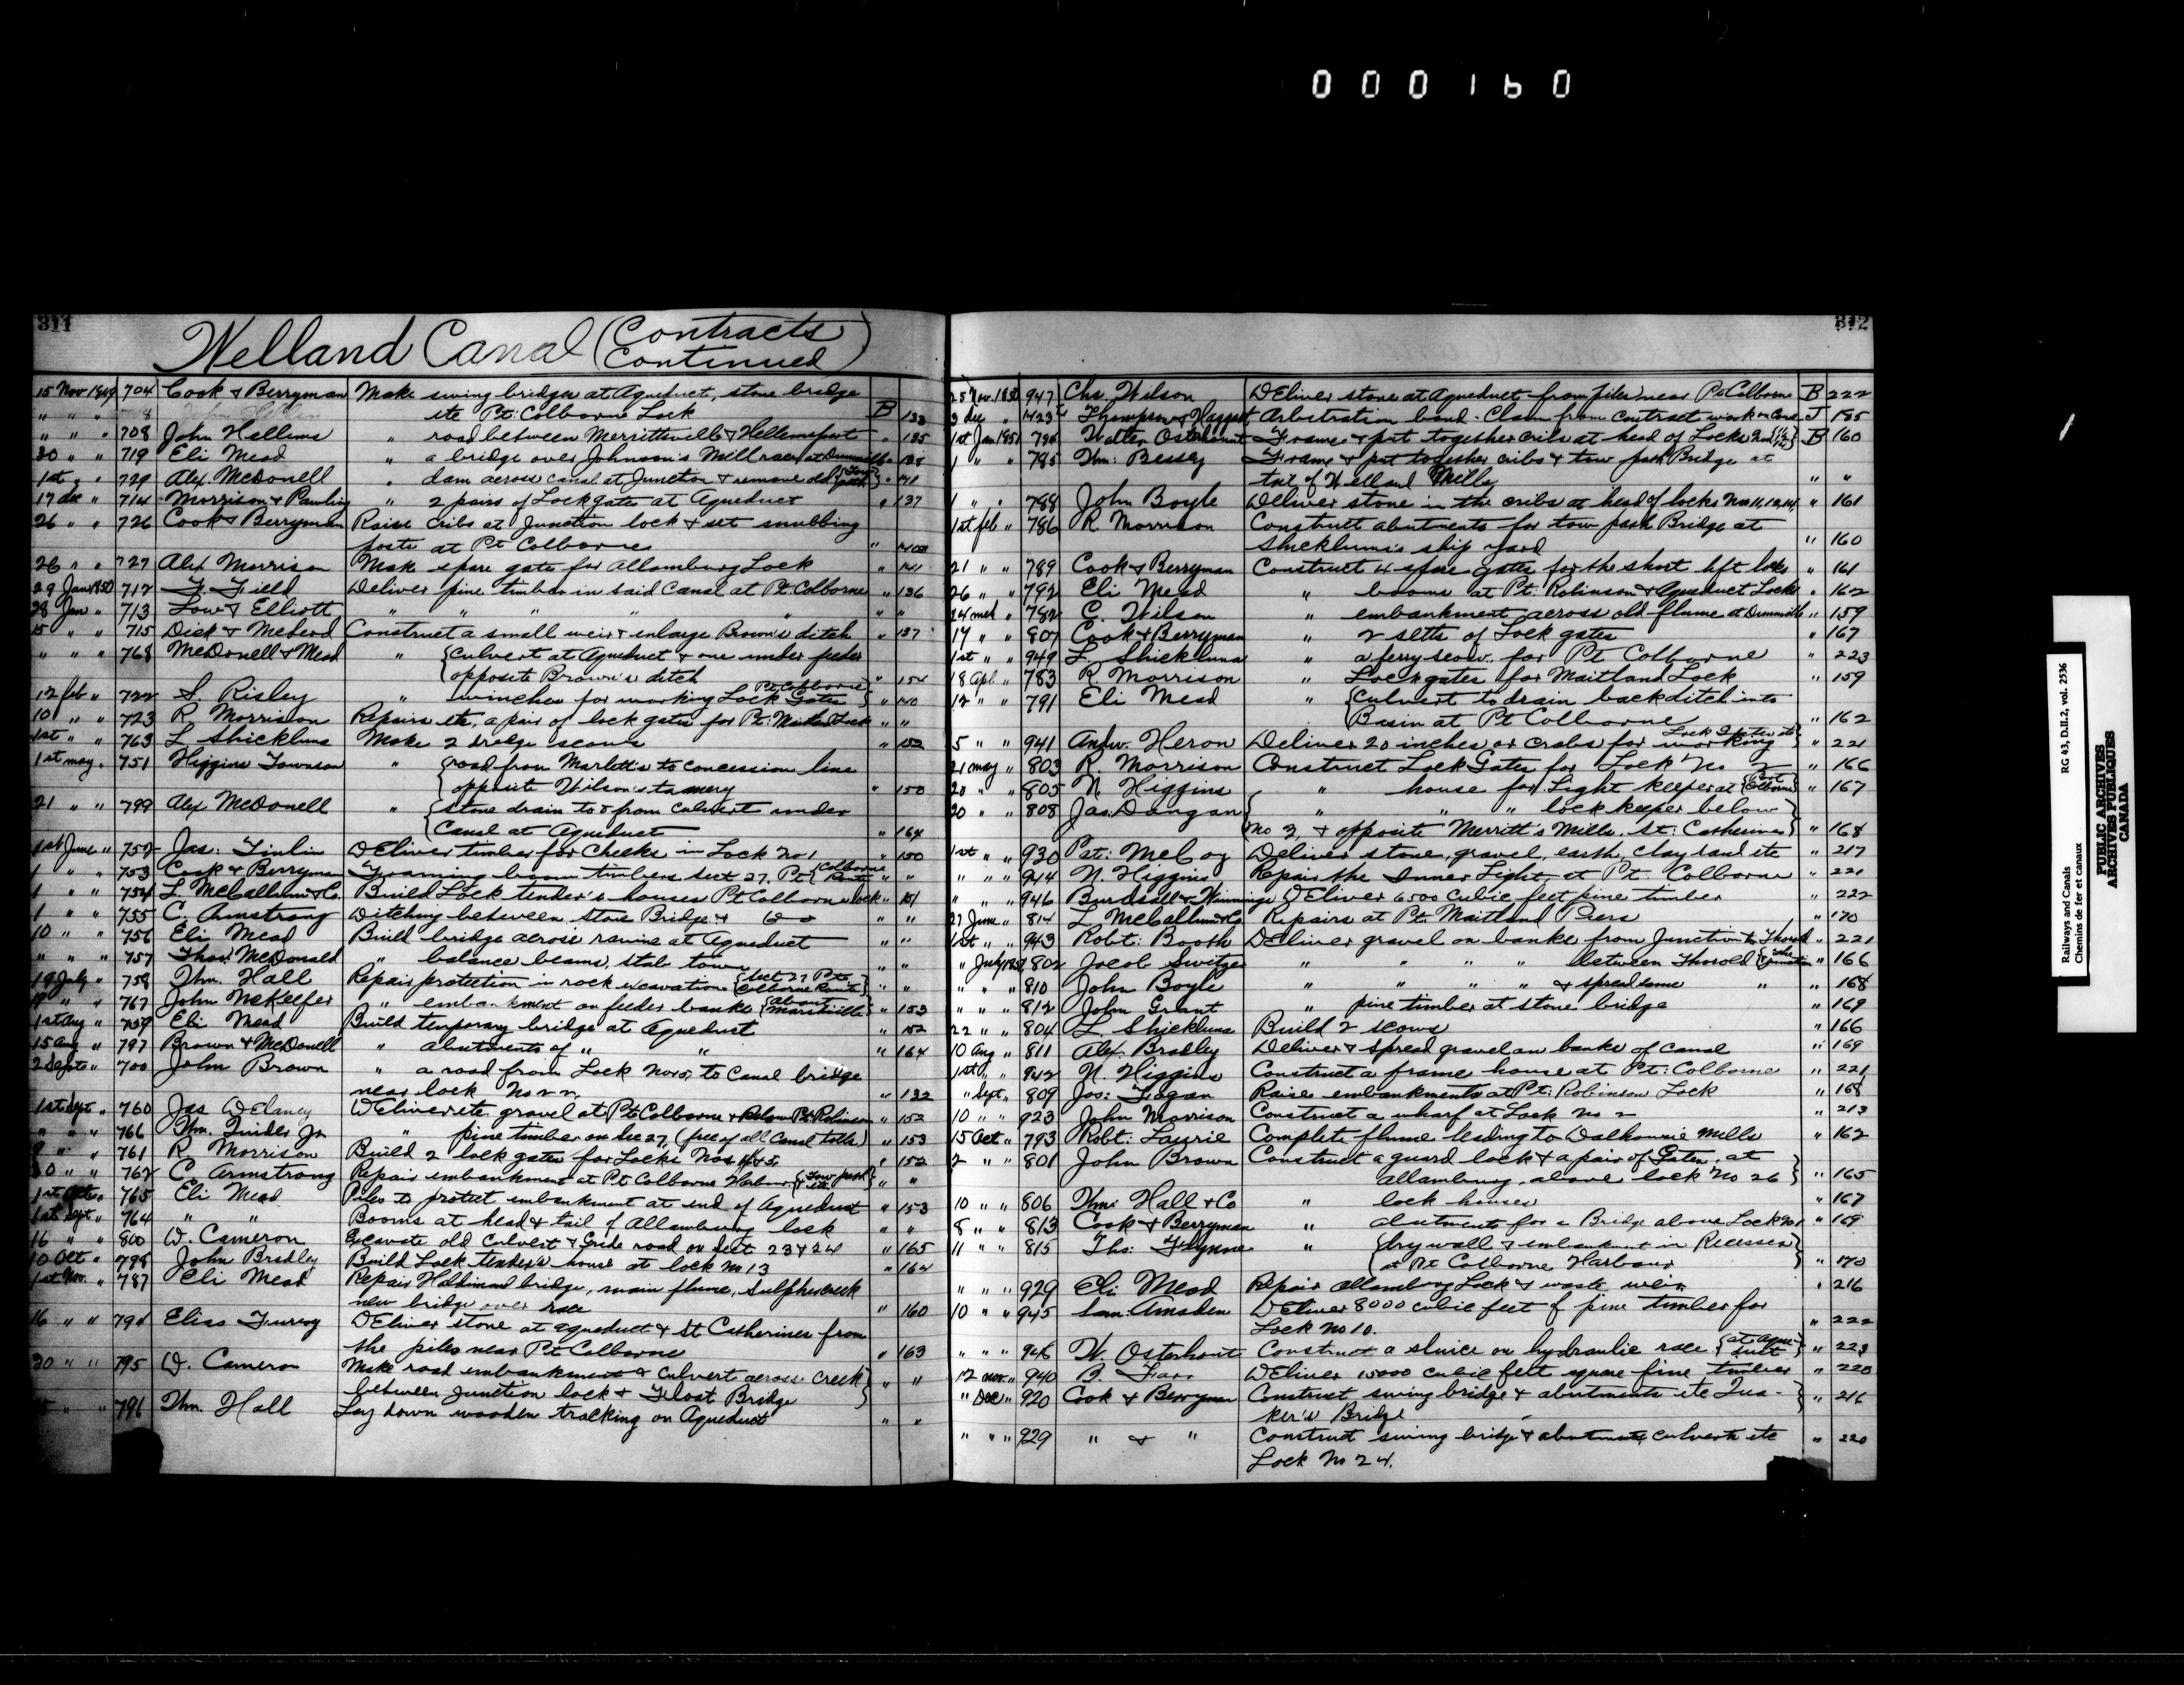 000160
311
Welland Canal (Contracts Continued)
15 Nov 1849 704 Cook & Berryman Make swing bridges at Aqueduct, stone bridge
" " " etc Pt: Colborne Lock B 133
" " " 708 John Hellems " road between Merrittsville & Hellemsport " 135
30 " " 719 Eli Mead " a bridge over Johnson's Mill race at Dunnville " 138
1st " " 729 Alex McDonell " dam across canal at Junction & remove old {Tow path} " 141
17 dec " 714 Morrison & Pawling " 2 pairs of Lock gates at Aqueduct " 137
26 " " 726 Cook & Berryman Raise Cribs at Junction lock & set snubbing
posts at Pt Colborne "
26 " " 727 Alex Morrison Make spare gates for Allamburg Lock " 141
29 Jan 1850 712 F. Field Deliver pine timber in said Canal at Pt Colborne " 136
28 Jan " 713 Low & Elliott " " " " " " "
15 " " 715 Dick & McLeod Construct a small weir & enlarge Brown's ditch " 137
" " " 768 McDonell & Mead " {Culvert at Aqueduct & one under feeder
opposite Brown's ditch " 154
12 feb " 722 S. Risley " winches for working Lock Gates Pt Colborne} " 140
10 " " 723 R Morrison Repairs etc, a pair of lock gates for Pt: Maitland Lock " "
1st " " 763 L Shickluna Make 2 dredge scows " 152
1st may " 751 Higgins Townson " {road from Marlett's to concession line
opposite Wilson's tannery " 150
21 " " 799 Alex McDonell " {stone drain to & from Culvert under
Canal at Aqueduct " 164
1st June " 752 Jas: Tinlin Deliver timber for Cheeks in Lock No 1 " 150
1 " " 753 Cook & Berryman Framing boom timbers Sect 27, Pt {Colborne Route " "
1 " " 754 L. McCallum & Co. Build Lock tender's houses Pt Colborne lock " 151
1 " " 755 C. Armstrong Ditching between stone Bridge & " "
10 " " 756 Eli Mead Build bridge across ravine at Aqueduct " "
" " " 757 Thos: McDonald " balance beams, stab town " "
19 July " 758 Thm. Hall Repair protection in rock excavation {Sect 27 Pt Colborne Route} " "
19 " " 767 John McKeefer " embankment on feeder banks {about Marshville} " 153
1st Aug " 759 Eli Mead Build temporary bridge at Aqueduct " 152
15 Aug " 797 Brown & McDonell " abutments of " " " 164
2 Septe " 700 John Brown " a road from Lock No 15, to Canal bridge
near lock No 22 " 132
1st Sept " 760 Jas Delaney Deliver etc gravel at Pt Colborne & below Pt Robinson " 152
" " " 766 Thm. Quider Jr " pine timber on Sec 27, (free of all Canal tolls) " 153
9 " " 761 R. Morrison Build 2 lock gates for Locks Nos 4 & 5, " 152
30 " " 762 C. Armstrong Repair embankment at Pt Colborne Harbour {Tow path etc} " "
1st Octo " 765 Eli Mead Piles to protect embankment at end of Aqueduct " 153
1st Sept " 764 " " Booms at head & tail of Allamburg lock " "
16 " " 800 D. Cameron Excavate old Culvert & Grade road on Sect 23 & 24 " 165
10 Oct " 798 John Bradley Build Lock tender's house at lock No 13 " 164
1st Nov. " 787 Eli Mead Repair Haldimand bridge, main flume, Sulphur creek
new bridge over race " 160
16 " " 794 Elias Furroy Deliver stone at aqueduct & St Catherines from
the piles near Pt Colborne " 163
30 " " 795 D. Cameron Make road embankment & Culvert across Creek}
between Junction lock & Float Bridge } " "
" " 796 Thm. Hall Lay down wooden tracking on Aqueduct " "
312
25 Nov. 1850 947 Chs. Wilson Deliver stone at Aqueduct from piles near Pt Colborne B 222
3 dec " 1423 Thompson & Haggart Arbitration bond - Claim from contract work on Canal J 185
1st Jan 1851 784 Walter Osterhout Frame & put together cribs at head of Locks B 160
1 " " 785 Thm: Bessey Frame & put together cribs & tow path Bridge at
tail of Welland Mills " "
1 " " 788 John Boyle Deliver stone in the cribs at head of locks Nos 11, 12, 14, " 161
1st feb " 786 R Morrison Construct abutments for tow path Bridge at
Shickluna's ship yard " 160
21 " " 789 Cook & Berryman Construct 4 spare gates for the short lift locks " 161
26 " " 792 Eli Mead " booms at Pt: Robinson & Aqueduct Locks " 162
24 mch " 782 C. Wilson " embankment across old flume at Dunnville " 159
17 " " 807 Cook & Berryman " 2 setts of Lock gates " 167
1st " " 949 L. Shickluna " a ferry scow. for Pt Colborne " 223
18 Apl. " 783 R Morrison " Lock gates for Maitland Lock " 159
12 " " 791 Eli Mead " {Culvert to drain back ditch into
Basin at Pt Colborne " 162
5 " " 941 Andw. Heron Deliver 20 inches or crabs for working Lock Gates etc} " 221
21 may " 803 R. Morrison Construct Lock Gates for Lock No 2 " 166
20 " " 805 N. Higgins " house for Light keeper at {Port Colborne} " 167
20 " " 808 Jas. Dangan { " " " lock keeper below }
No 3, & opposite Merritt's Mills, St: Catherines} " 168
1st " " 930 Pat: McCoy Deliver stone, gravel, earth, clay land etc " 217
" " " 944 N. Higgins Repair the Inner Light at Pt: Colborne " 221
" " " 946 Burdsall & Deliver 6500 Cubic feet pine timber " 222
27 June " 814 L McCallum & Co Repairs at Pt: Maitland Piers " 170
1st " " 943 Robt: Booth Deliver gravel on banks from Junction to Thorold " 221
" July 1851 802 Jacob Switzer " " " " between Thorold {& the Junction " 166
" " " 810 John Boyle " " " " & spread same " " 168
" " " 812 John Grant " pine timber at stone bridge " 169
22 " " 804 L Shickluna Build 2 scows " 166
10 Aug " 811 Alex. Bradley Deliver & spread gravel on banks of canal " 169
1st " " 942 N. Higgins Construct a frame house at Pt: Colborne " 221
" Sept " 809 Jos: Fagan Raise embankments at Pt: Robinson Lock " 168
10 " " 923 John Morrison Construct a wharf at Lock No 2 " 213
15 Oct " 793 Robt: Laurie Complete flume leading to Dalhousie Mills " 162
2 " " 801 John Brown Construct a guard lock & a pair of Gates, at }
allamburg, above lock No 26 } " 165
10 " " 806 Thm: Hall & Co " lock houses " 167
8 " " 813 Cook & Berryman " abutments for a Bridge above Lock No 1 " 169
11 " " 815 Ths: Flynne " {dry wall & embankment in Recesses}
at Pt Colborne Harbour " 170
" " " 929 Eli Mead Repair Allamburg Lock & waste weir " 216
10 " " 945 Sam: Amsden Deliver 8000 cubic feet of pine timber for
Lock No 10. " 222
" " " 948 W. Osterhout Construct a sluice on hydraulic race {at Aqueduct} " 223
12 nov. " 940 B. Farr Deliver 15000 cubic feet square pine timber " 220
" Dec " 920 Cook & Berryman Construct swing bridge & abutments etc Qua- }
ker's Bridge " 216
" " " 929 " & " Construct swing bridge & abutments, culverts etc " 220
Lock No 24.
RG 43, D.II.2, vol. 2536
Railways and Canals
Chemins de fer et canaux
PUBLIC ARCHIVES
ARCHIVES PUBLIQUES
CANADA